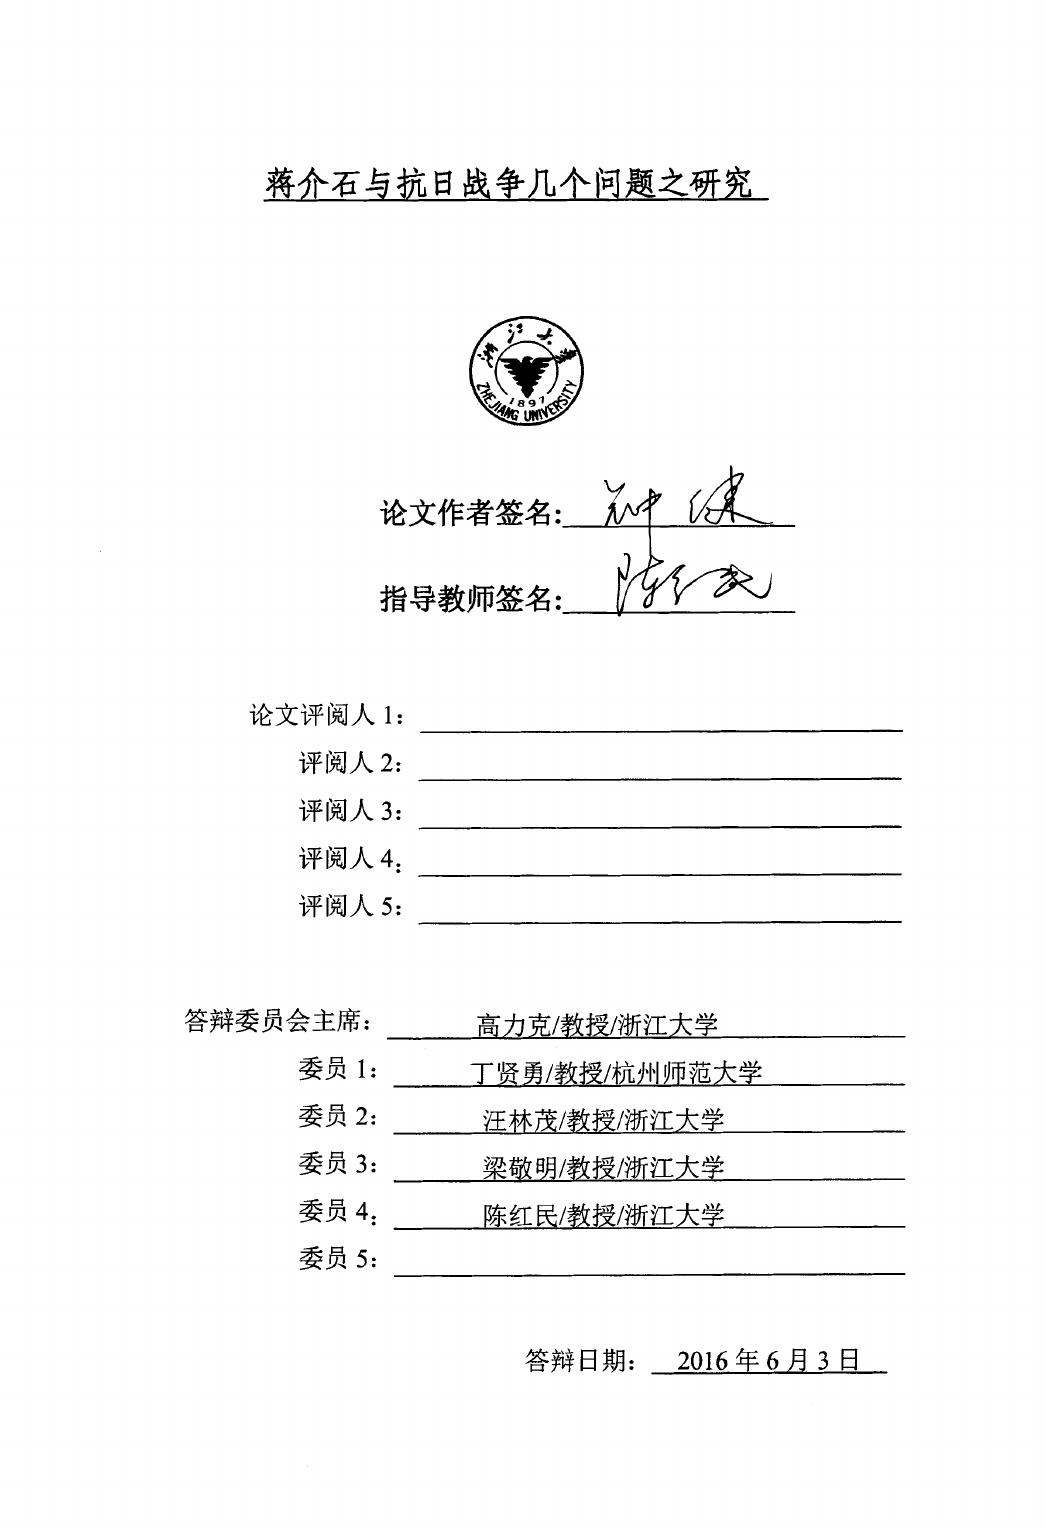 蒋介石与抗日战争几个问题之研究
浙江大学
ZHEJIANG UNIVERSITY
1897
论文作者签名: 钟健
指导教师签名: 陈红民
论文评阅人 1:
评阅人 2:
评阅人 3:
评阅人 4:
评阅人 5:
答辩委员会主席: 高力克/教授/浙江大学
委员 1: 丁贤勇/教授/杭州师范大学
委员 2: 汪林茂/教授/浙江大学
委员 3: 梁敬明/教授/浙江大学
委员 4: 陈红民/教授/浙江大学
委员 5:
答辩日期: 2016 年 6 月 3 日